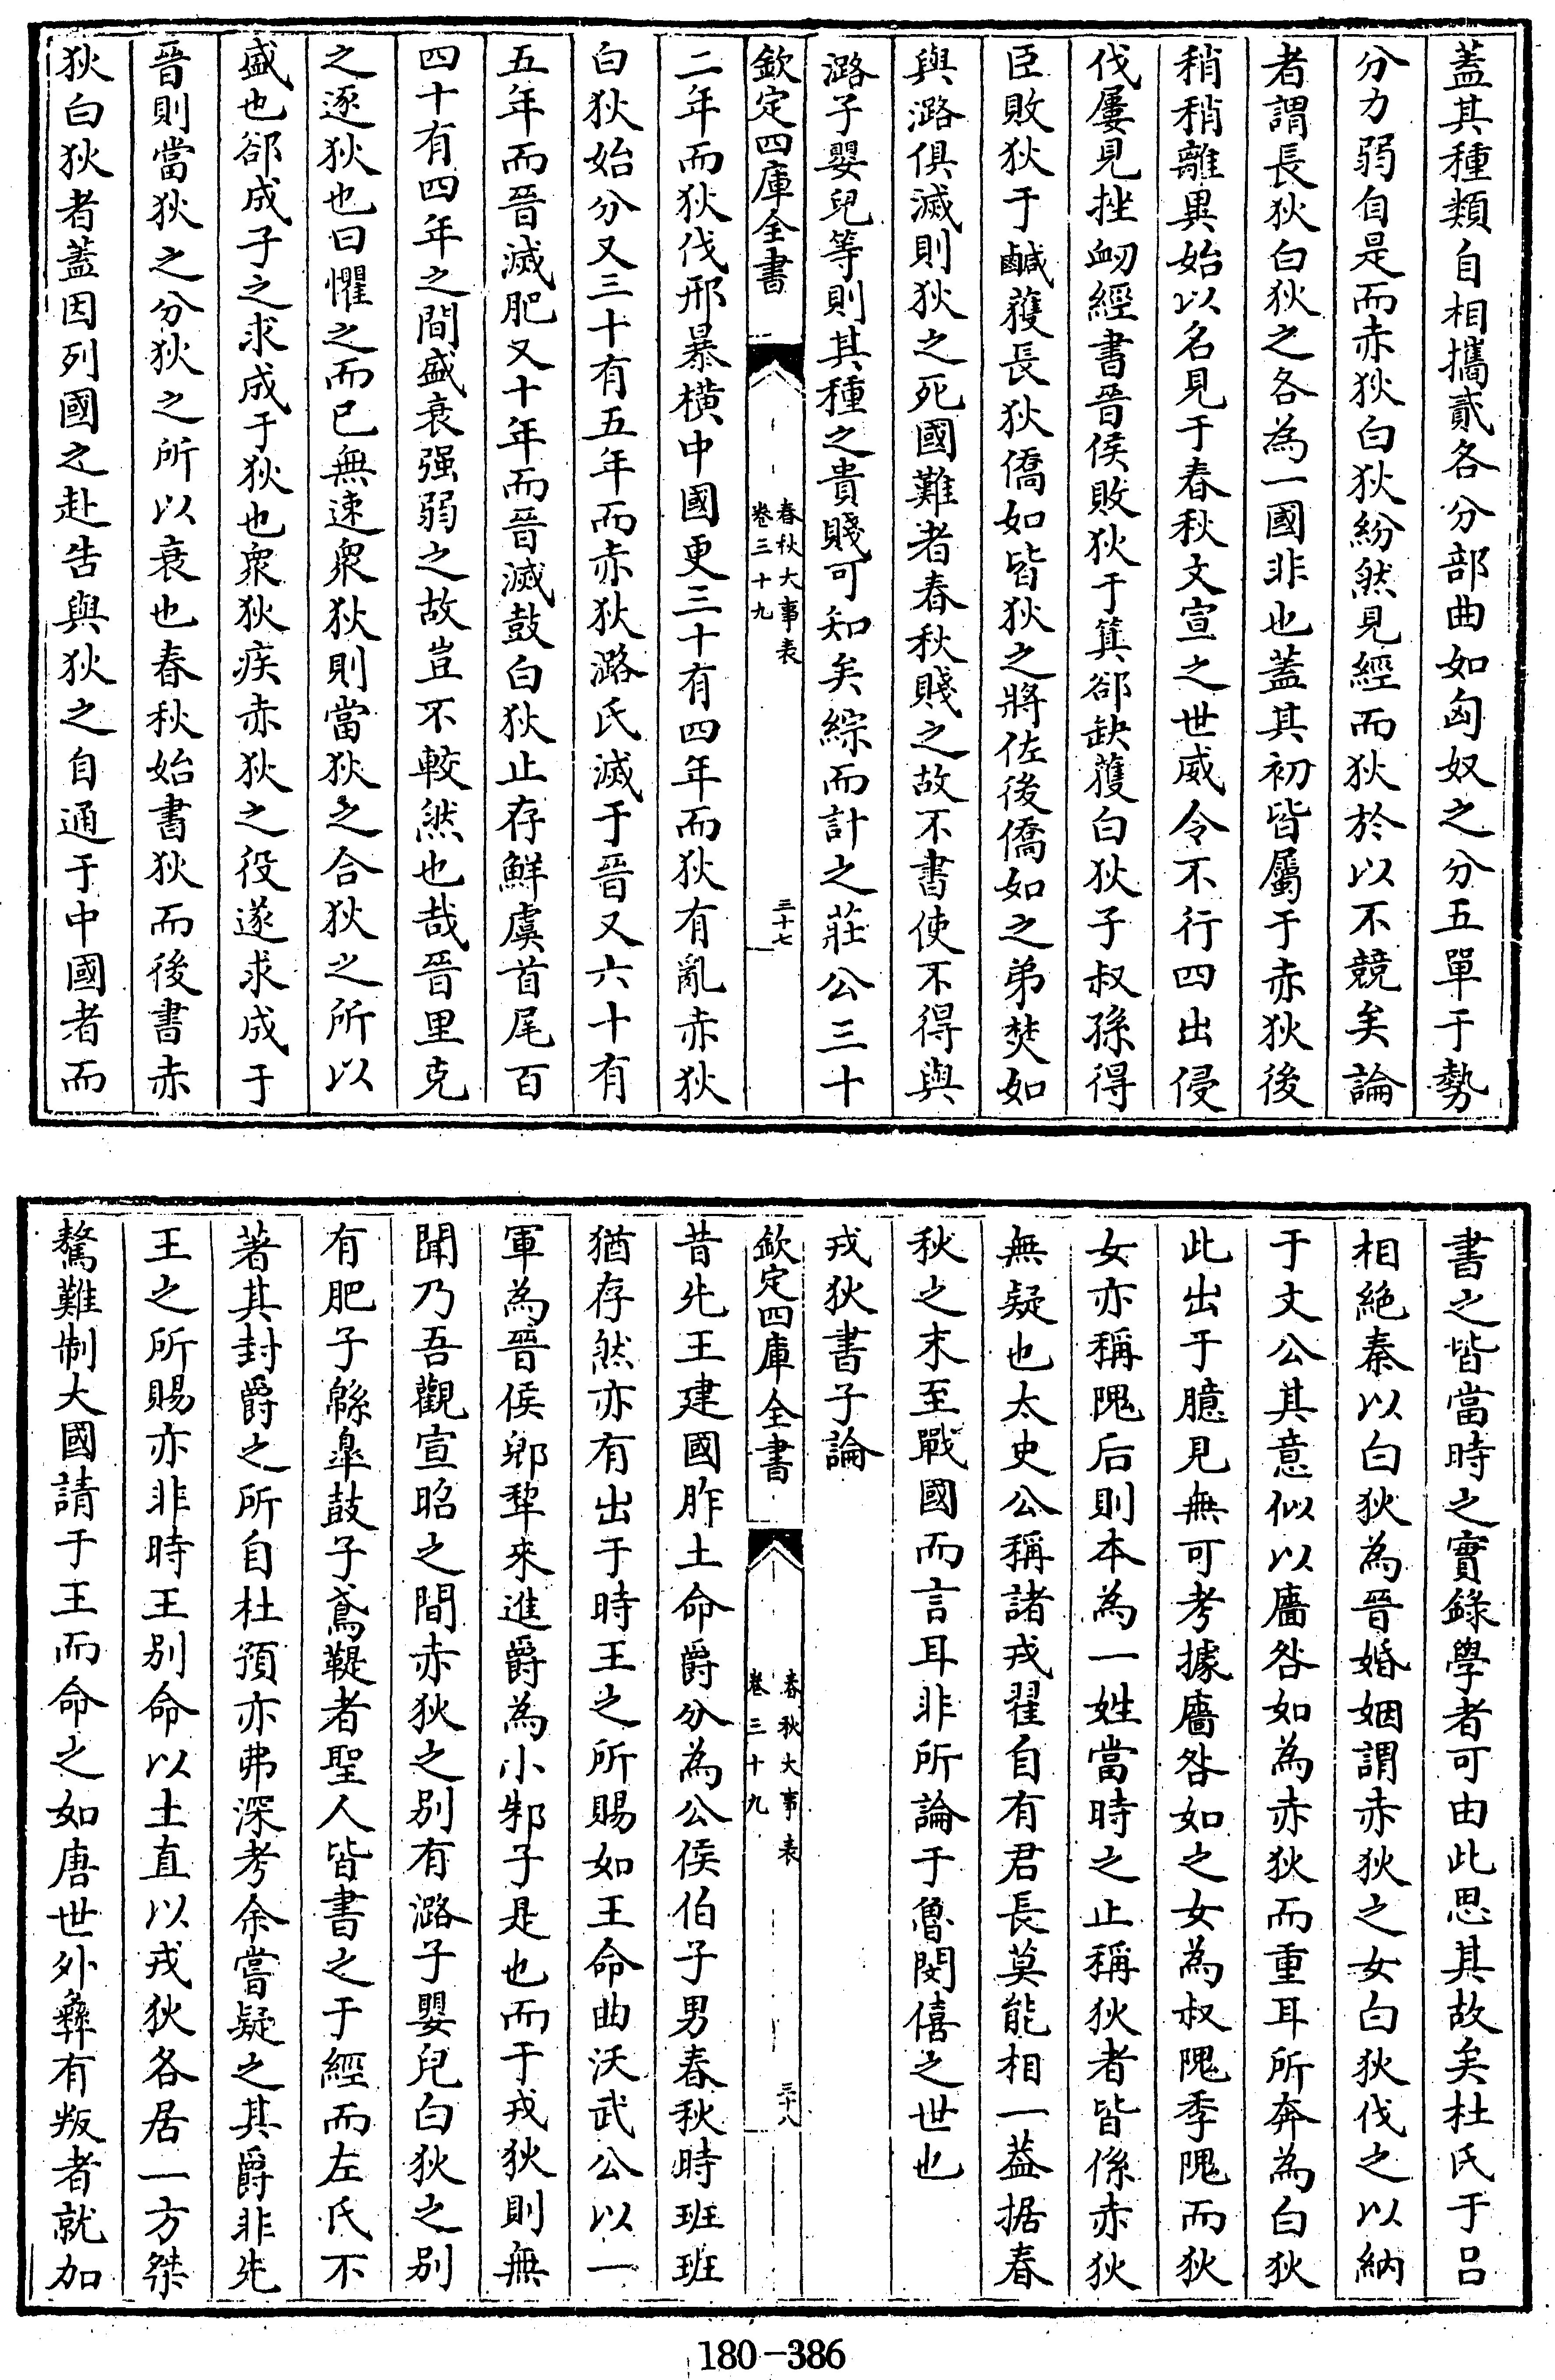 蓋其種類自相攜貳各分部曲如匈奴之分五單于勢
分力弱自是而赤狄白狄紛然見經而狄於以不競矣論
者謂長狄白狄之各為一國非也蓋其初皆屬于赤狄後
稍稍離異始以名見于春秋文宣之世威令不行四出侵
伐屢見挫衂經書晉侯敗狄于箕郤缺獲白狄子叔孫得
臣敗狄于鹹獲長狄僑如皆狄之將佐後僑如之弟焚如
與潞俱滅則狄之死國難者春秋賤之故不書使不得與
潞子嬰兒等則其種之貴賤可知矣綜而計之莊公三十
欽定四庫全書
春秋大事表
卷三十九
三十七
二年而狄伐邢暴橫中國更三十有四年而狄有亂赤狄
白狄始分又三十有五年而赤狄潞氏滅于晉又六十有
五年而晉滅肥又十年而晉滅鼓白狄止存鮮虞首尾百
四十有四年之間盛衰强弱之故豈不較然也哉晉里克
之逐狄也曰懼之而已無速衆狄則當狄之合狄之所以
盛也郤成子之求成于狄也衆狄疾赤狄之役遂求成于
晉則當狄之分狄之所以衰也春秋始書狄而後書赤
狄白狄者蓋因列國之赴告與狄之自通于中國者而
書之皆當時之實錄學者可由此思其故矣杜氏于呂
相絶秦以白狄為晉婚姻謂赤狄之女白狄伐之以納
于文公其意似以廧咎如為赤狄而重耳所奔為白狄
此出于臆見無可考據廧咎如之女為叔隗季隗而狄
女亦稱隗后則本為一姓當時之止稱狄者皆係赤狄
無疑也太史公稱諸戎翟自有君長莫能相一蓋据春
秋之末至戰國而言耳非所論于魯閔僖之世也
戎狄書子論
欽定四庫全書
春秋大事表
卷三十九
三十八
昔先王建國胙土命爵分為公侯伯子男春秋時班班
猶存然亦有出于時王之所賜如王命曲沃武公以一
軍為晉侯郳犂來進爵為小邾子是也而于戎狄則無
聞乃吾觀宣昭之間赤狄之别有潞子嬰兒白狄之别
有肥子緜臯鼓子鳶鞮者聖人皆書之于經而左氏不
著其封爵之所自杜預亦弗深考余嘗疑之其爵非先
王之所賜亦非時王别命以土直以戎狄各居一方桀
驁難制大國請于王而命之如唐世外彝有叛者就加
180-386